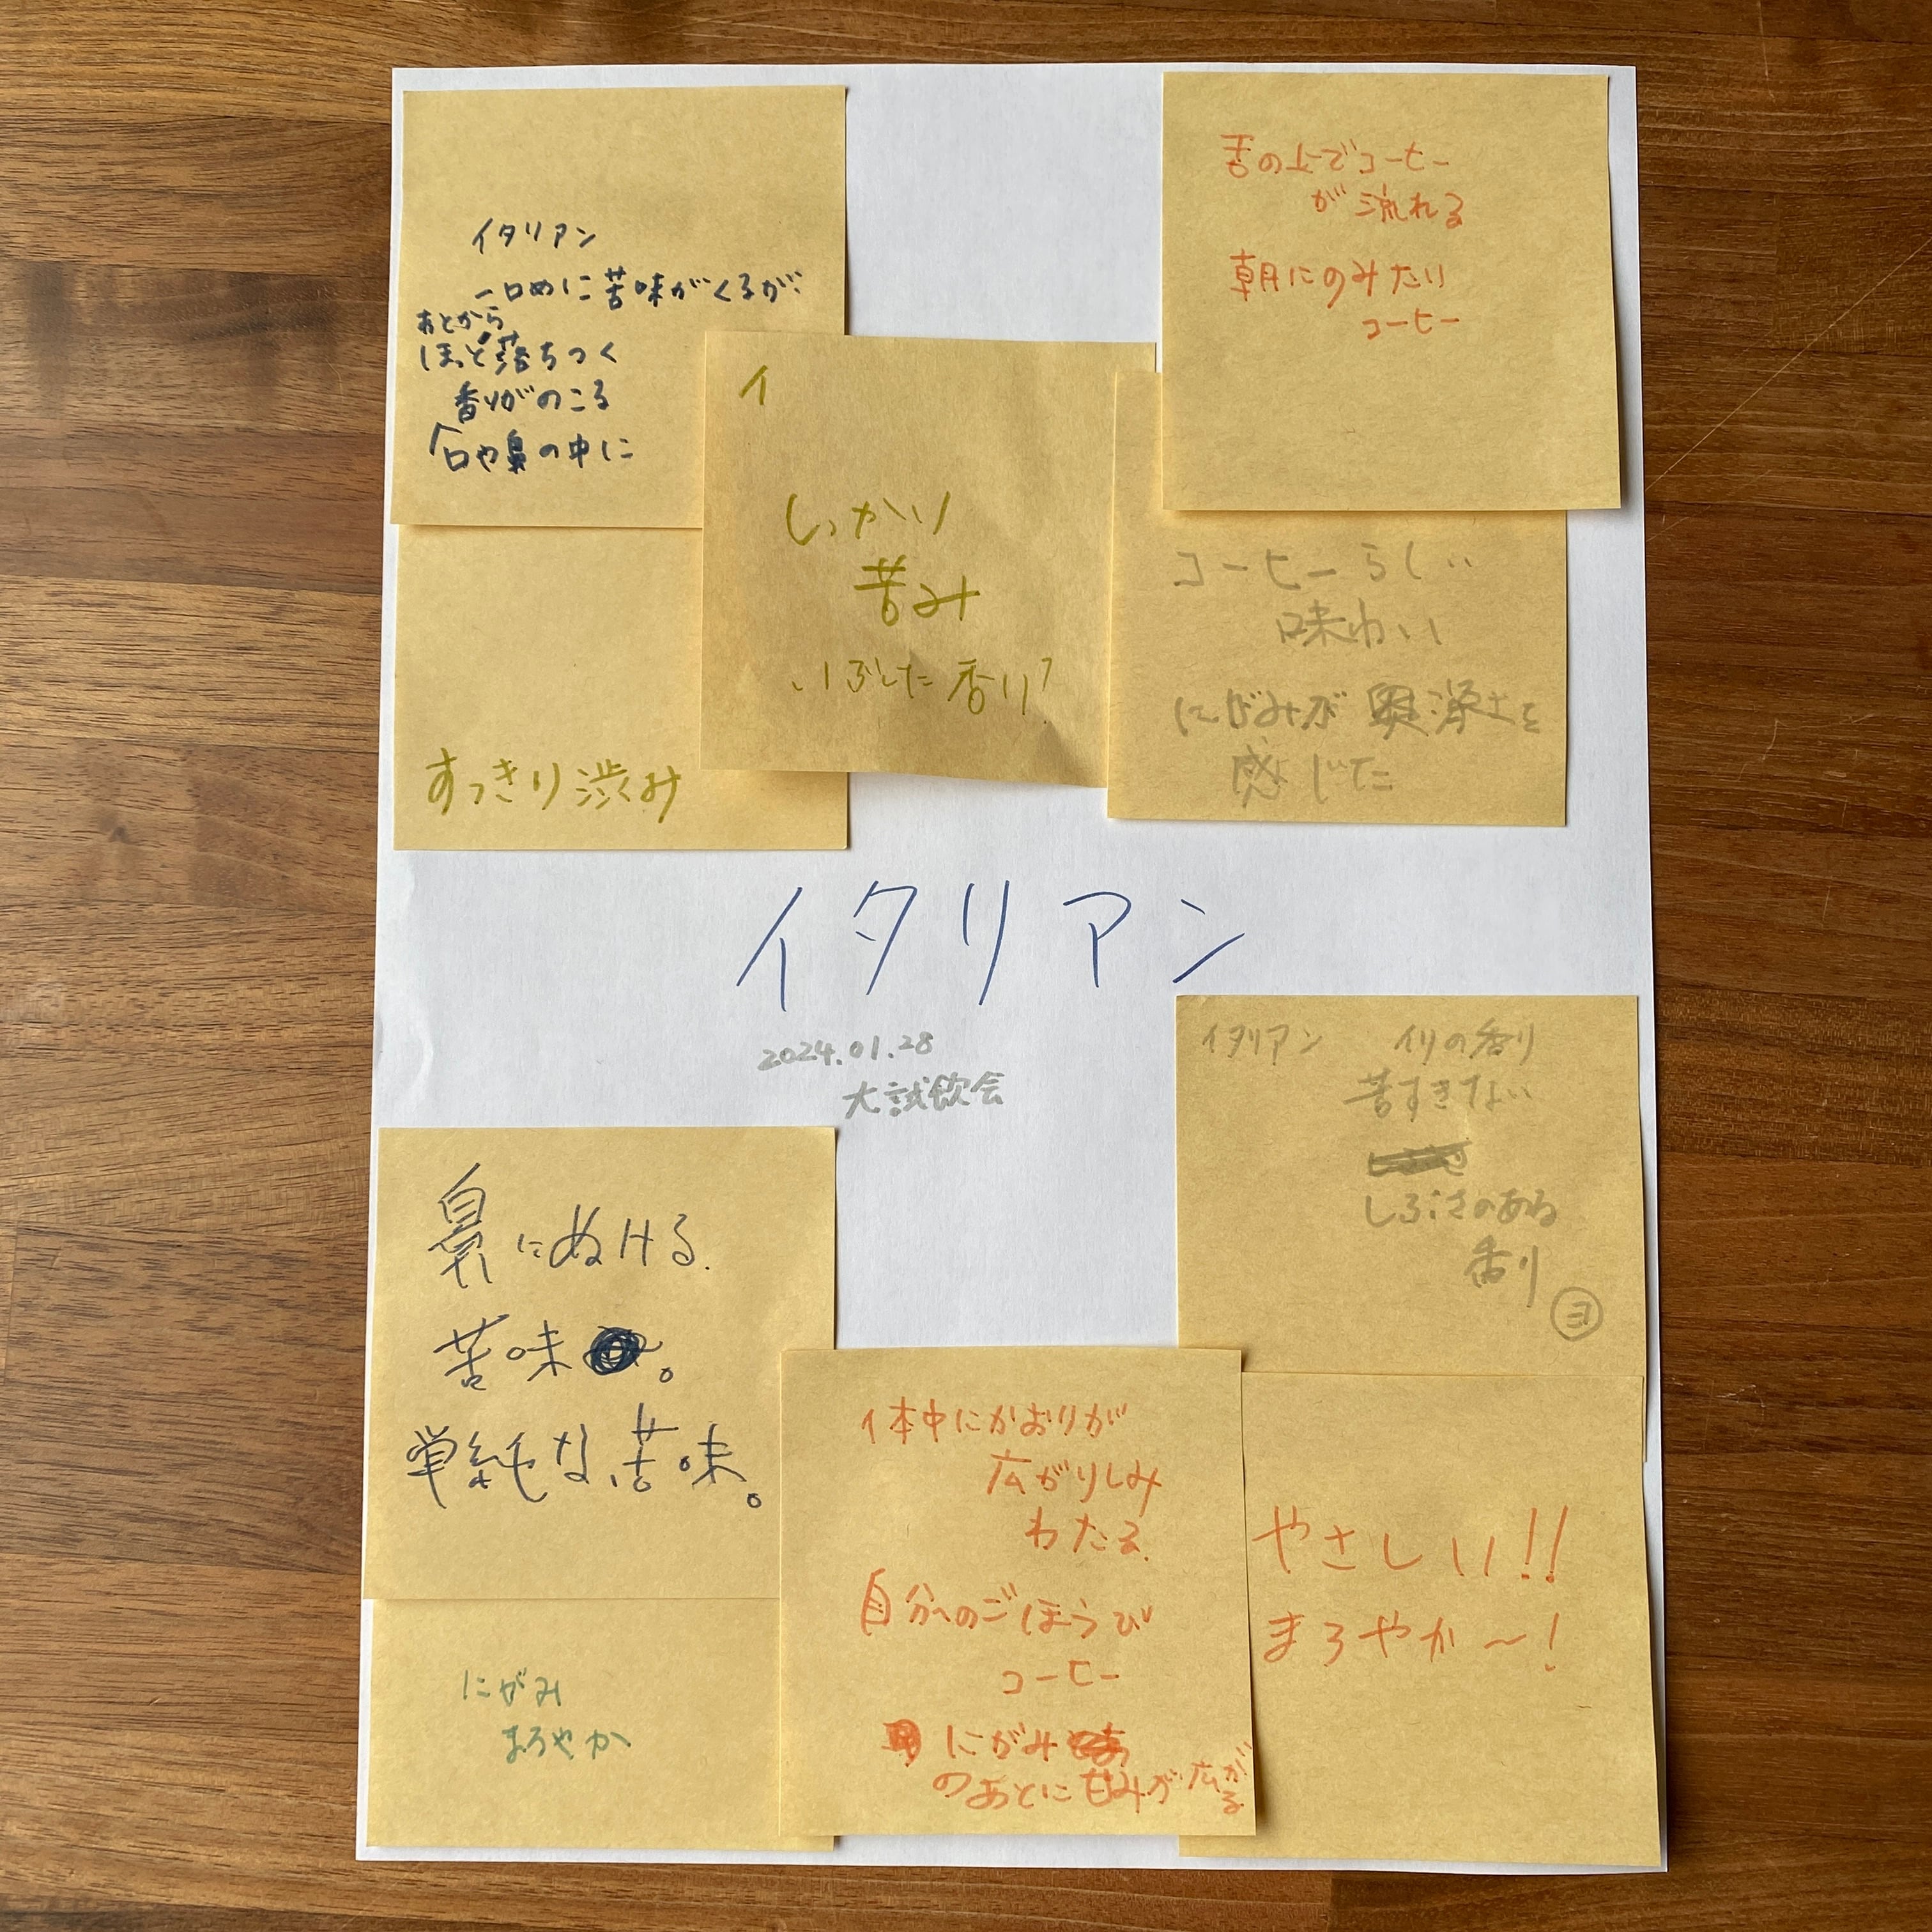 イタリアン
一口めに苦味がくるが、
あとから
ほっと落ちつく
香りがのこる
口や鼻の中に
イ
しっかり
苦み
いぶした香り?
舌の上でコーヒー
が流れる
朝にのみたい
コーヒー
すっきり渋み
コーヒーらしい
味わい
にがみが
感じた
イタリアン
2024.01.28
大試飲会
イタリアン イリの香り
苦すぎない
しぶさのある
香り
ヨ
鼻にぬける.
苦味。
単純な苦味。
にがみ
まろやか
体中にかおりが
広がりしみ
わたる.
自分へのごほうび
コーヒー
にがみ
のあとに甘みが広がる
やさしい!!
まろやか〜!